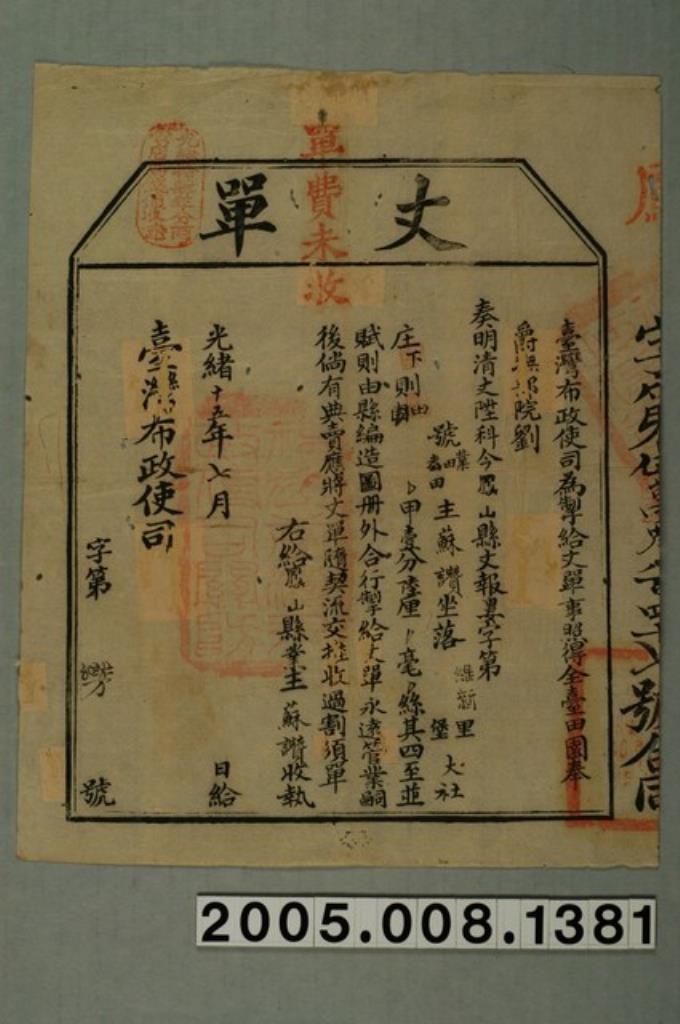 丈單
單費未收
臺灣布政使司為掣給丈單事照得全臺田園奉
爵撫部院劉
奏明清丈陞科今鳳山縣丈報異字第
號業田主蘇讚坐落維新里堡大社
庄下則田甲壹分陸厘毫絲其四至並
賦則由縣編造圖册外合行掣給丈單永遠管業嗣
後倘有典賣應將丈單隨契流交推收過割須單
右給鳳山縣業主蘇讚收執
光緒十五年七月日給
臺灣布政使司
字第號
號合同
2005.008.1381